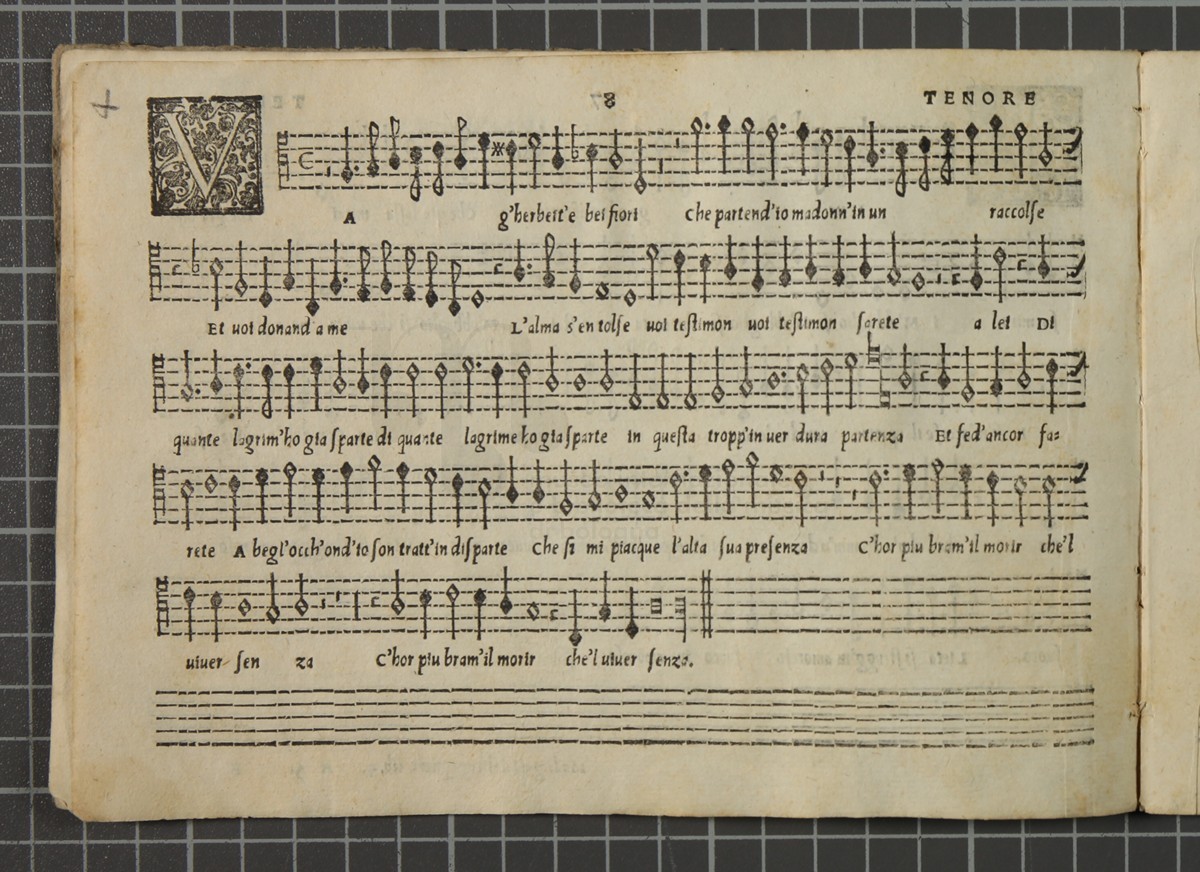 4
8 TENORE
VA g'herbett'e bei fiori Che partend'io madonn'in un raccolse
Et uoi donand a me L'alma s'en tolse uoi testimon uoi testimon sarete a lei Di
quante lagrim'ho gia sparte di quante lagrime ho gia sparte in questa tropp'in uer dura partenza Et fed'ancor fa=
rete A begl'occh'ond'io son tratt'in disparte Che si mi piacque l'alta sua presenza C'hor piu bram'il morir che'l
uiuer sen za C'hor piu bram'il morir che'l uiuer senza.